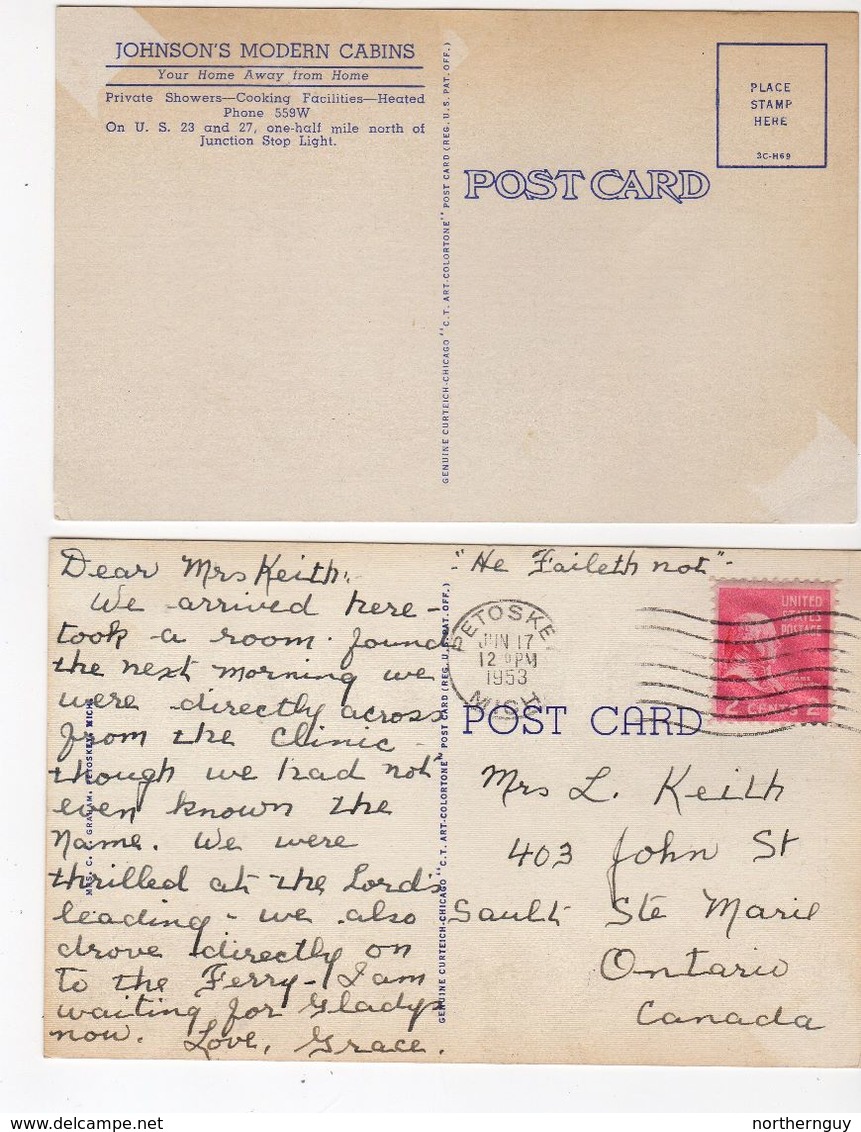 JOHNSON'S MODERN CABINS
Your Home Away from Home
Private Showers—Cooking Facilities—Heated
Phone 559W
On U. S. 23 and 27, one-half mile north of
Junction Stop Light.
GENUINE CURTEICH-CHICAGO "C.T. ART-COLORTONE" POST CARD (REG. U.S. PAT. OFF.)
PLACE
STAMP
HERE
3C-H69
POST CARD
Dear Mrs Keith:
We arrived here -
took a room. found
the next morning we
were directly across
from the Clinic -
though we had not
even known the
name. We were
thrilled at the Lord's
leading - we also
drove directly on
to the Ferry - I am
waiting for Gladys
now. Love, Grace.
MRS. C. GRAHAM, PETOSKEY, MICH.
GENUINE CURTEICH-CHICAGO "C.T. ART-COLORTONE" POST CARD (REG. U.S. PAT. OFF.)
"He Faileth not"-
PETOSKE
JUN 17
12 PM
1953
MICH
UNITED
STATES
POSTAGE
2 CENTS 2
POST CARD
Mrs L. Keith
403 John St
Sault Ste Marie
Ontario
Canada
delcampe.net
northernguy